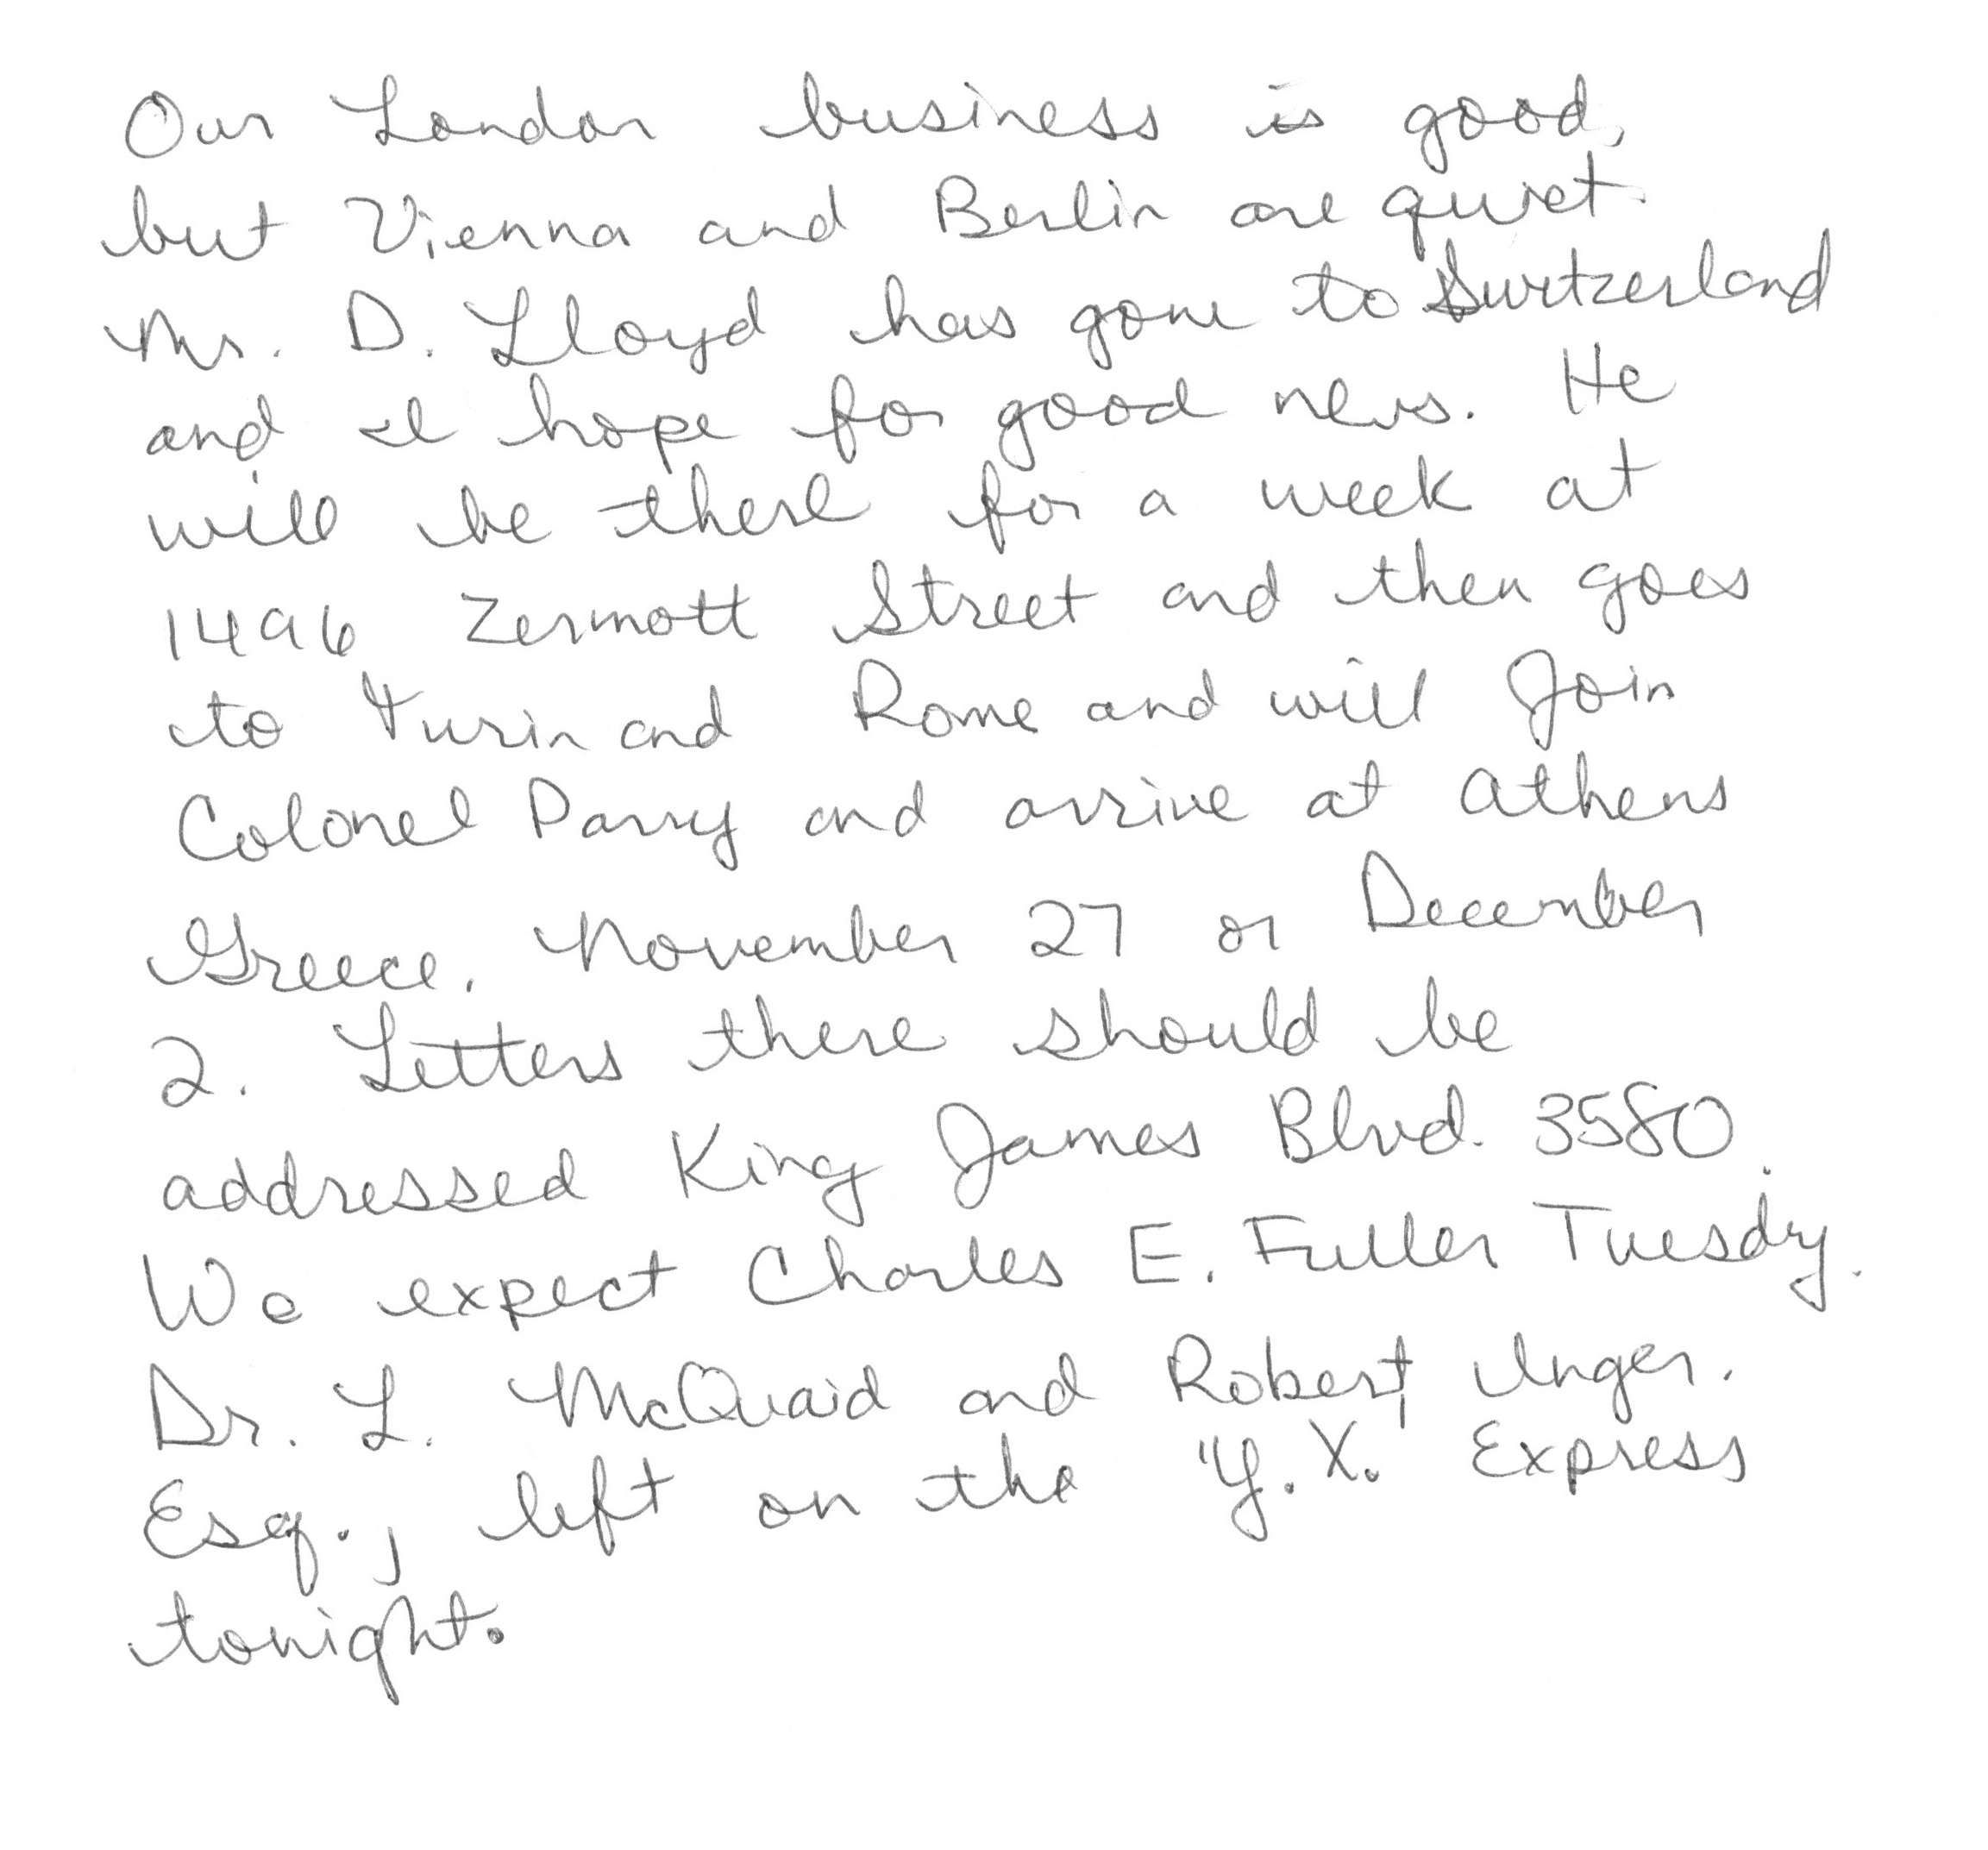 Our London business is good,
but Vienna and Berlin are quiet.
Mr. D. Lloyd has gone to Switzerland
and I hope for good news. He
will be there for a week at
1496 Zermott Street and then goes
to Turin and Rome and will Join
Colonel Parry and arrive at Athens
Greece, November 27 or December
2. Letters there should be
addressed King James Blvd. 3580.
We expect Charles E. Fuller Tuesdy.
Dr. L. McQuaid and Robert, Unger.
Esq., left on the "Y.X." Express
tonight.